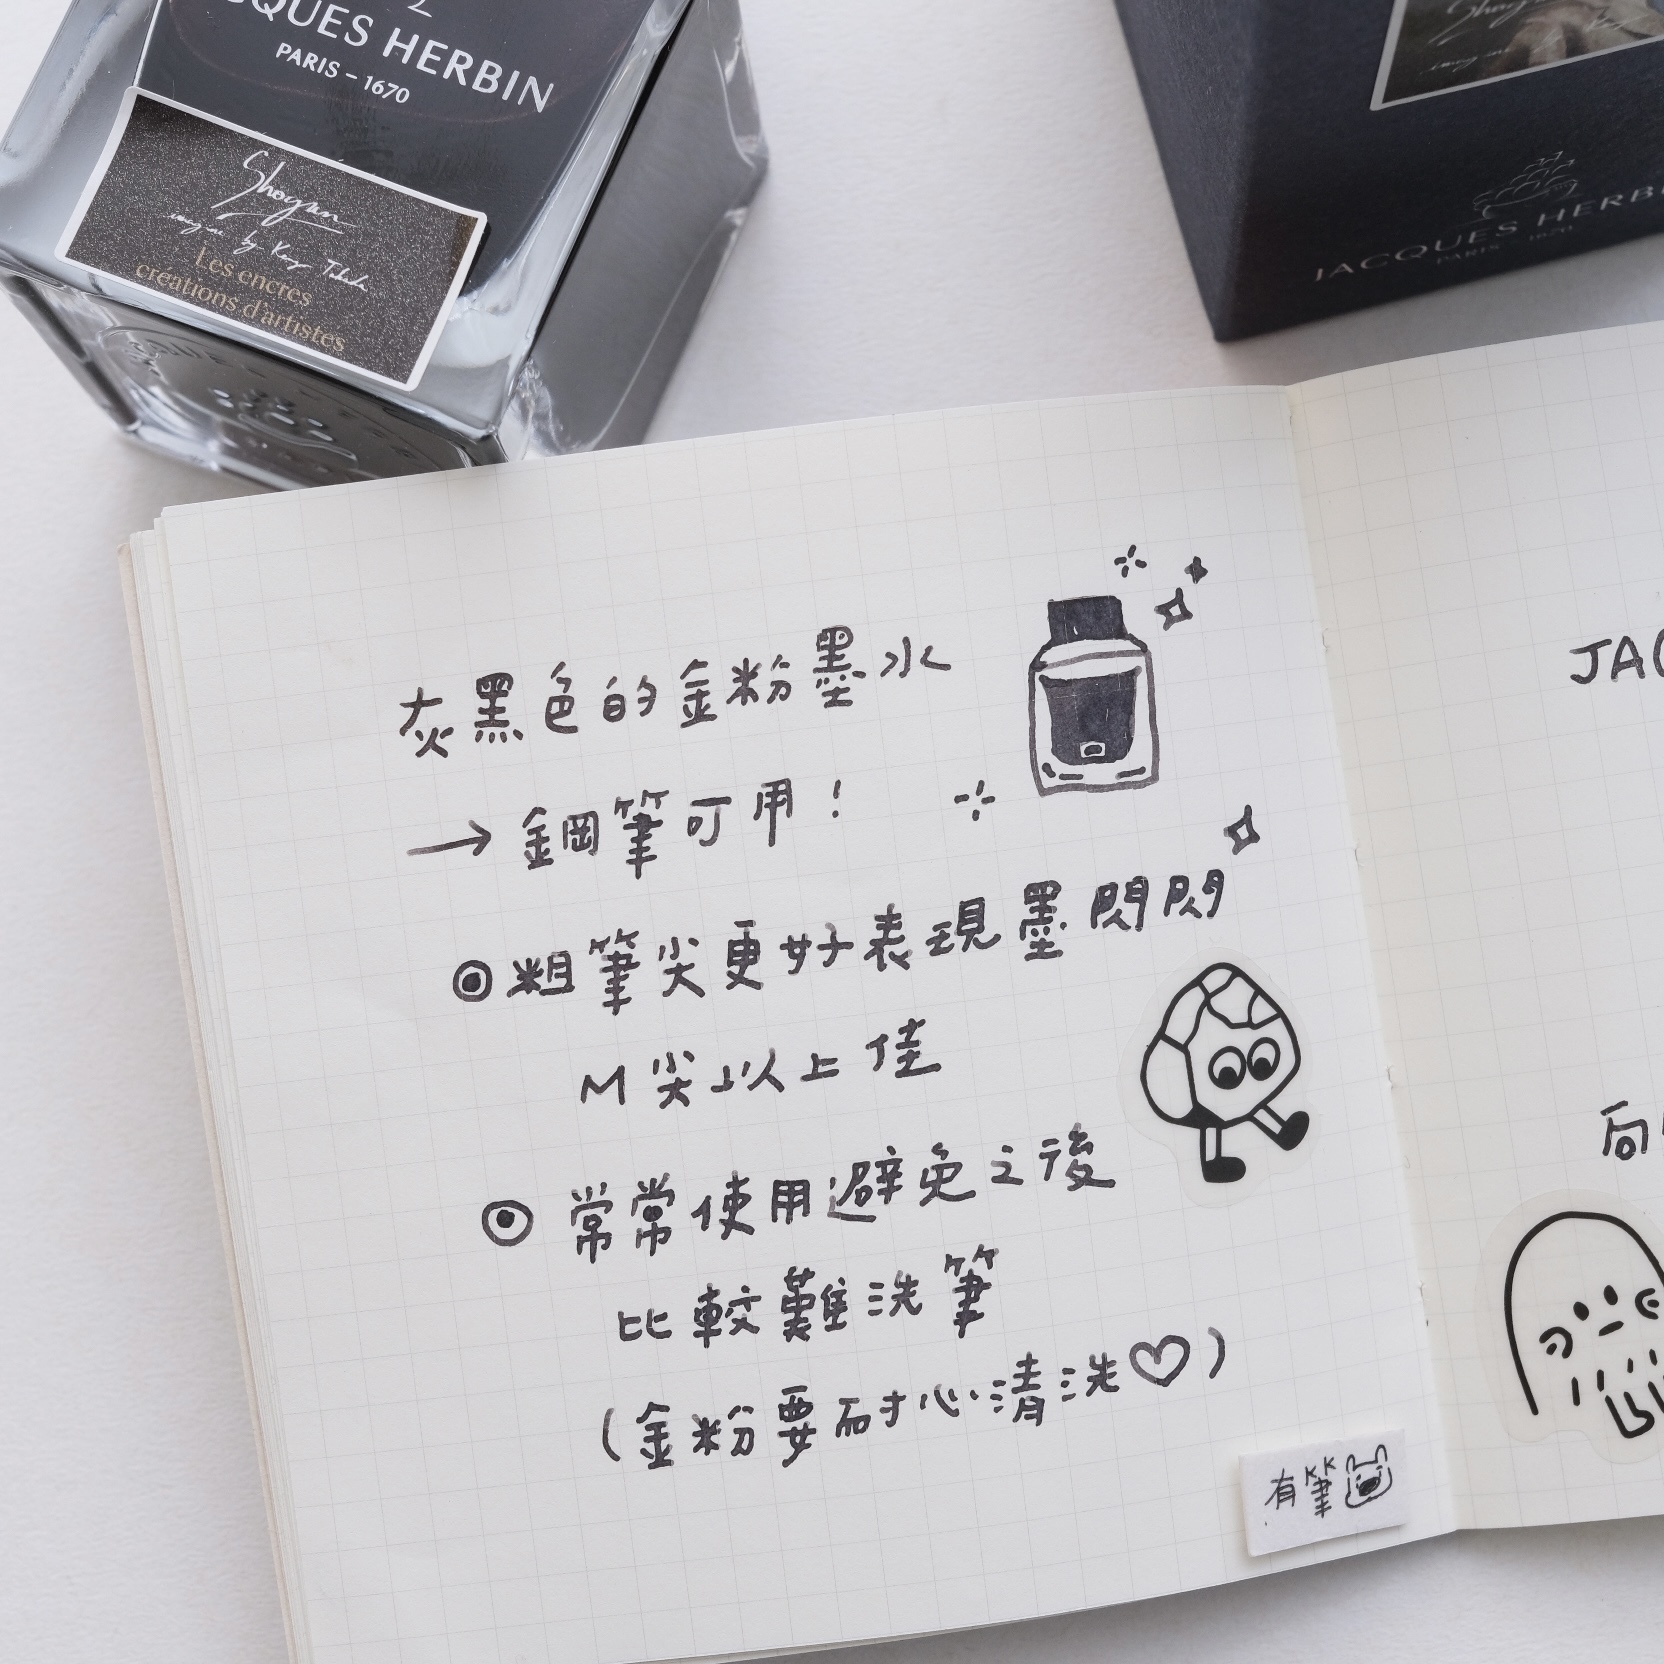 JACQUES HERBIN
PARIS - 1670
Shogun
by Kenzo Takada
Les encres
créations d'artistes
Shogun
JACQUES HERBI
PARIS 1670
灰黑色的金粉墨水
→ 鋼筆可用！
◎粗筆尖更好表現墨閃閃
M尖以上佳
◎常常使用避免之後
比較難洗筆
(金粉要耐心清洗♡)
有筆
JAC